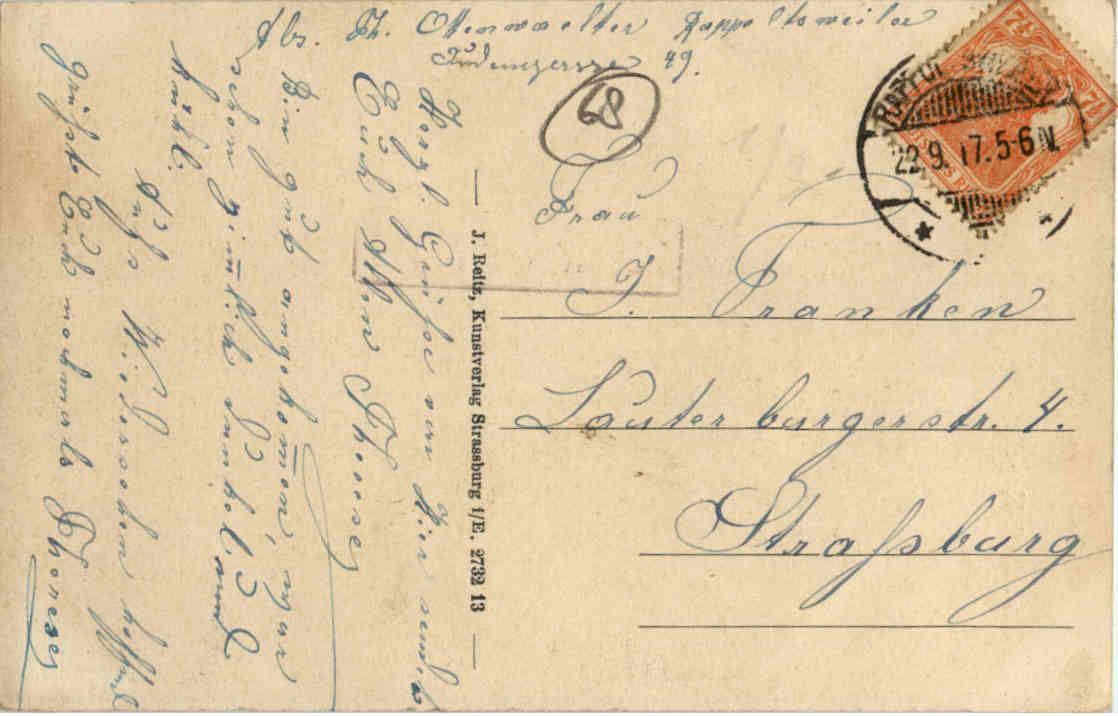 Abs. Th. Ottenwaelter Rappoltsweiler
49.
68
Frau
J. Franken
Lauterburgerstr. 4.
Straßburg
22.9.17.5-6N.
7½
7½
J. Reitz, Kunstverlag Strassburg i/E. 2732 13
Herzl. Grüße von Hier sendet
Euch Allen Therese
Bin gut angekom̅en, war
schon zim̅lich dunkel, und
kühl.
Auf Wiedersehen hoffend
grüßt Euch nochmals Therese